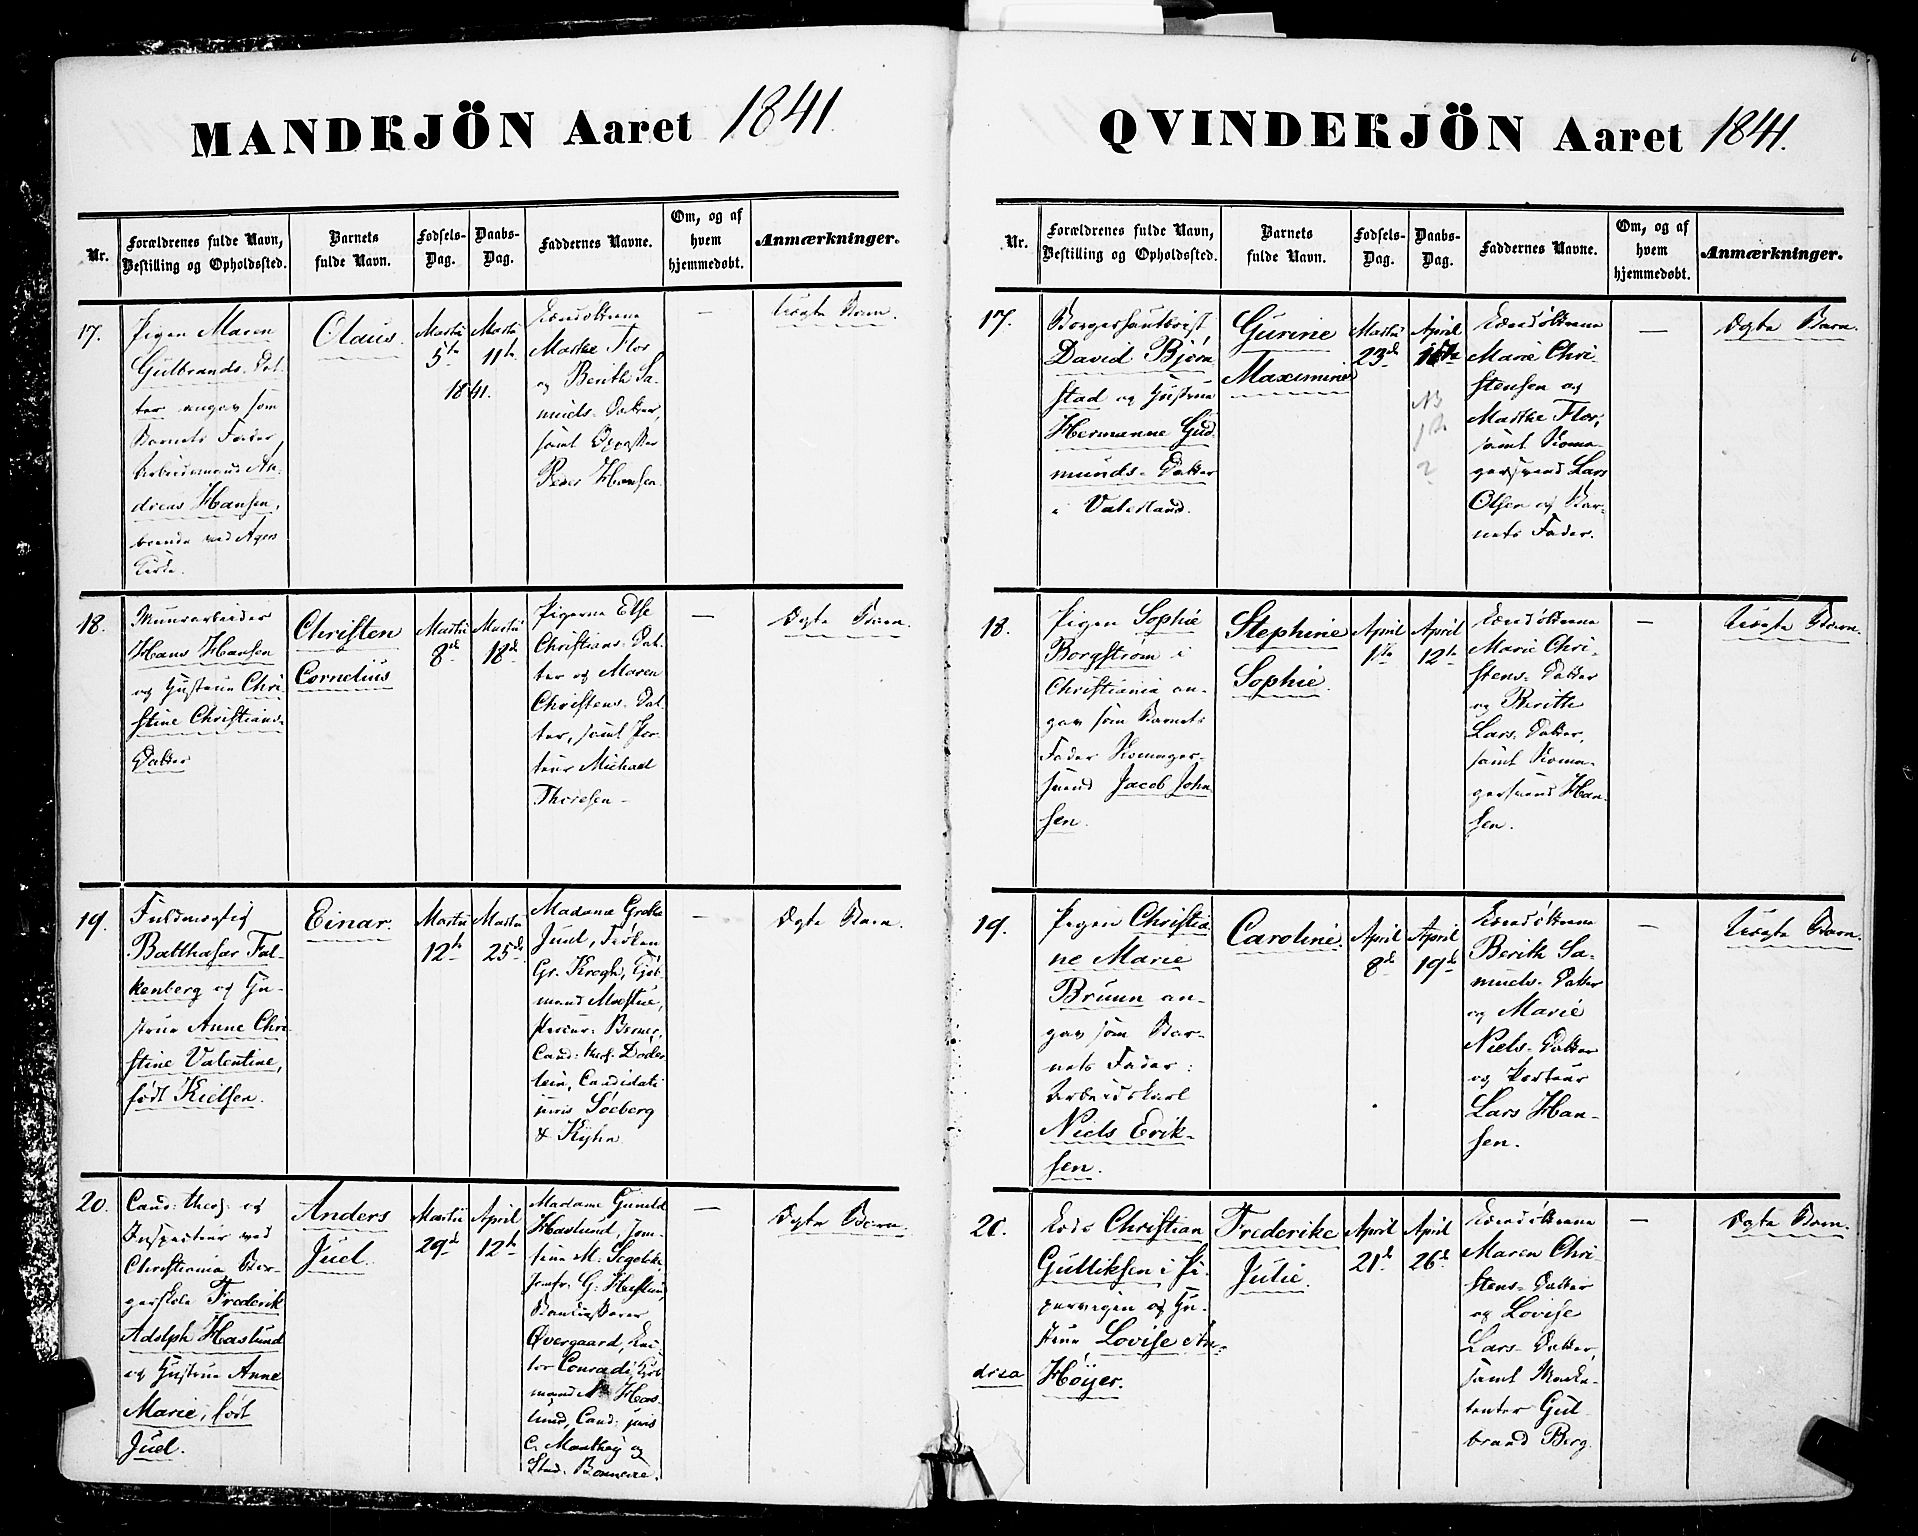 MANDKJÖN Aaret 1841.
Nr.
Forældrenes fulde Navn,
Bestilling og Opholdssted.
Barnets
fulde Navn.
Fødsels-
Dag.
Daabs-
Dag.
Faddernes Navne.
Om, og af
hvem
hjemmedøbt.
Anmærkninger.
17.
Pigen Maren
Gulbrands-Dat-
ter angav som
Barnets Fader
Arbeidsmand An-
dreas Hansen,
boende ved Agers
Kirke.
Olaus.
Martii
5te
Martii
11te
1841.
Marthe Flor
og Berith Sa-
muels-Datter,
samt
Peder Hansen.
—
Uægte Barn.
18.
Muurarbeider
Hans Hansen
og Hustrue Chri-
stine Christians-
Datter
Christen
Cornelius
Martii
8de
Martii
18de
Pigerne Else
Christians-Dat-
ter og Maren
Christens-Dat-
ter, samt Por-
teur Michael
Thoresen
—
Ægte Barn.
19.
Fuldmægtig
Balthasar Fal-
kenberg og Hu-
strue Anne Chri-
stine Valentine,
født Kielsen.
Einar.
Martii
12te
Martii
25de
Madame Grethe
Juel, Frøken
Gr. Krogh, Kjøb-
mand
Procur: Berner,
Cand: theol: Døder
lein, Candidati
juris Søeberg
& Kyhn
—
Ægte Barn.
20.
Cand: theol: og
Inspecteur ved
Christiania Bor-
gerskole Frederik
Adolph Haslund
og Hustrue Anne
Marie, født
Juel.
Anders
Juel.
Martii
29de
April
12te
Madame Gunild
Haslund, Jom-
frue M.
Jomfr. G. Haslund,
Øvergaard,
tor Conradi, Kjøb-
mand N. Has-
lund, Cand: juris
C. Monthey og
Stud.
—
Ægte Barn.
QVINDEKJÖN Aaret 1841.
Nr.
Forældrenes fulde Navn,
Bestilling og Opholdssted.
Barnets
fulde Navn.
Fødsels-
Dag.
Daabs-
Dag.
Faddernes Navne.
Om, og af
hvem
hjemmedøbt.
Anmærkninger.
17.
David Bjørn
stad og Hustrue
Hermanne Gud
munds-Datter
i
Gurine
Maximine
Martii
23de
April
NB
Marie Chri-
stensen og
Marthe Flor,
samt Koma-
gersvend Lars
Olsen og Bar-
nets Fader.
—
Ægte Barn.
18.
Pigen Sophie
Borgstrøm i
Christiania an-
gav som Barnets
Fader Komager-
svend Jacob John
sen.
Stephine
Sophie.
April
1ste
April
12te
Marie Chri-
stens-Datter
og Berith
Lars-Datter,
samt Koma-
gersvend Han-
sen.
—
Uægte Barn.
19.
Pigen Christia-
ne Marie
Bruun an-
gav som Bar-
nets Fader:
Arbeidskarl
Niels Erik-
sen.
Caroline.
April
8de
April
19de
Berith Sa-
muels-Datter
og Marie
Niels-Datter
og Porteur
Lars Han-
sen.
—
Uægte Barn.
20.
Lods Christian
Gulliksen i Pi-
pervigen og Hu-
strue Lovise An-
drea Höyer.
Frederike
Julie.
April
21de
April
26de
Maren Chri-
stens-Datter
og Lovise
Lars-Datter,
samt Marke-
tenter Gul
brand Berg.
—
Ægte Barn.